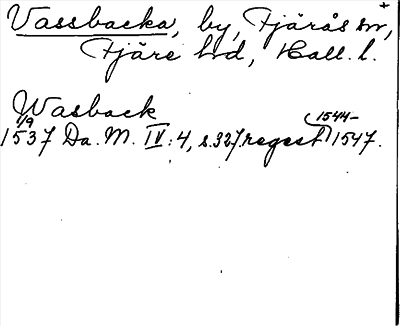 Vassbacka, by, Fjärås sn,
Fjäre hd, Hall. l.
Wasback
1/9 1544-
1537 Da. M. IV: 4, s. 327, regest 1547.